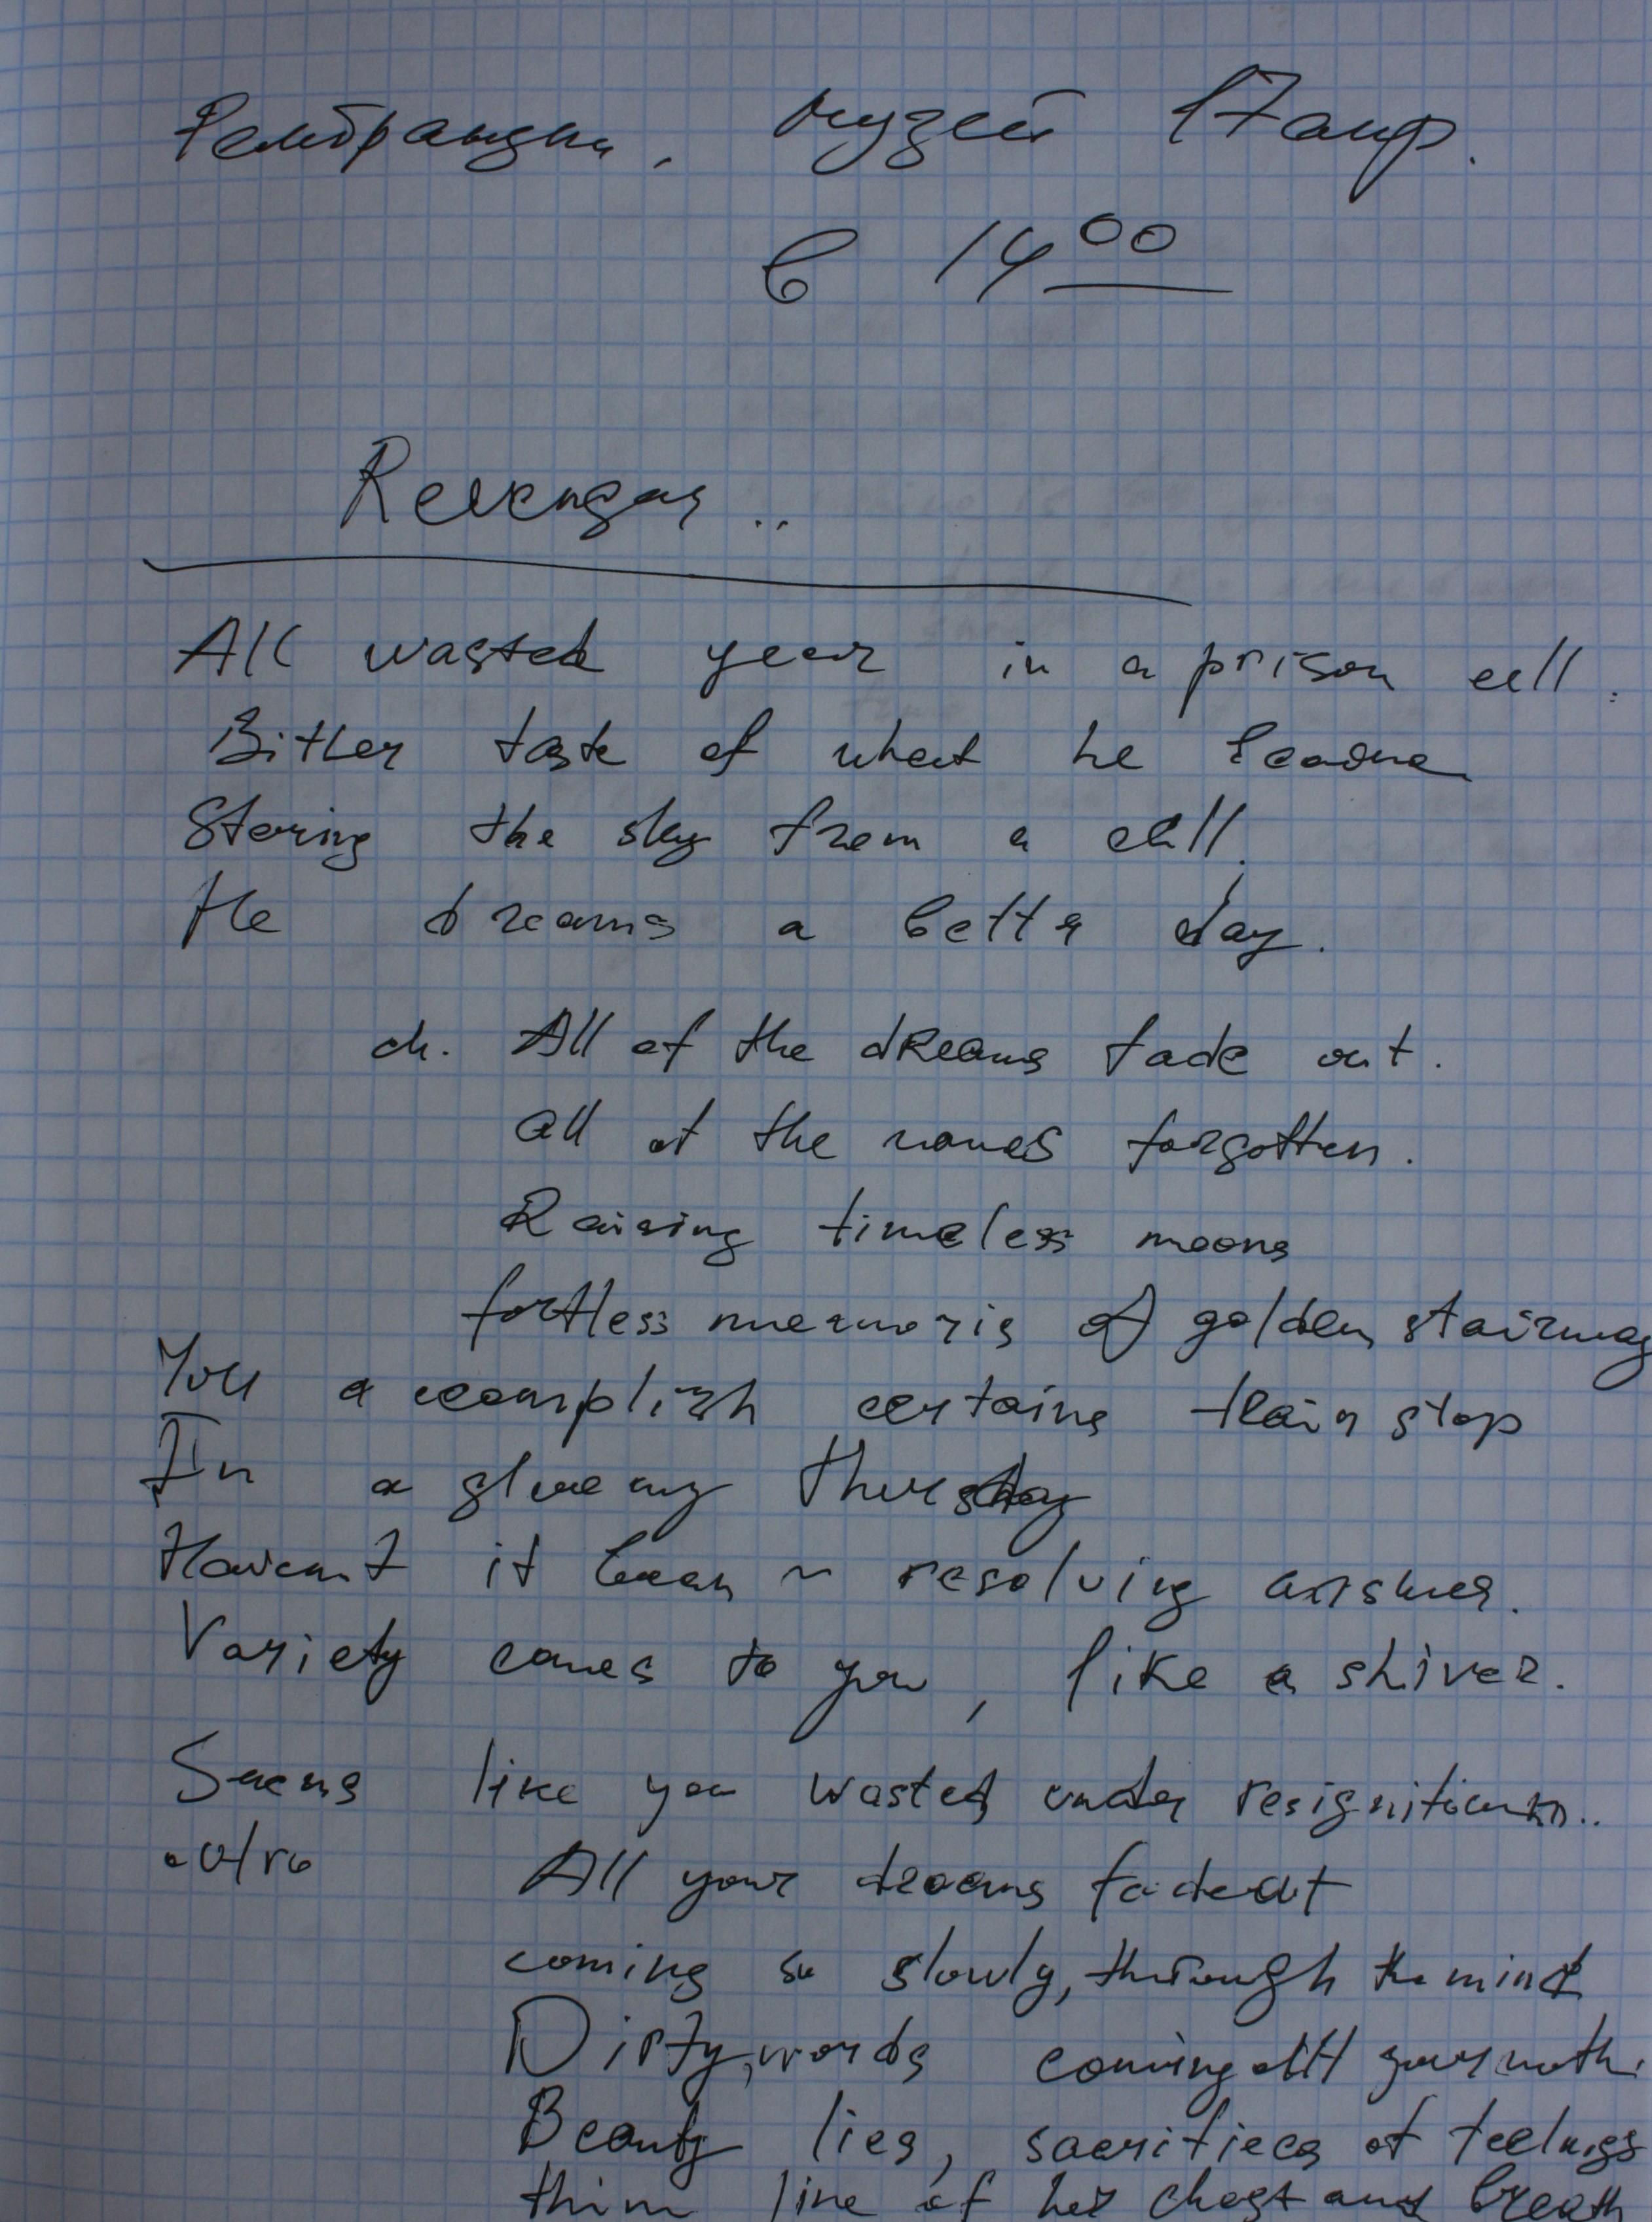 музей 17 апр.
в 14 00
All wasted year in a prison cell.
Bitter taste of what he
Staring the sky from a cell.
He dreams a better day.
ch. All of the dreams fade out.
all of the names forgotten.
Raising timeless moons
fortless memoris of golden stairway
You accomplish certains train stop
In a gloomy thursday
Havent it been ~ resolving answer.
Variety comes to you, like a shiver.
Seems like you wasted under
outro All your dreams fade out
coming so slowly, through the mind
Dirty, words coming off your moth.
Beauty lies, sacrifices of feelings
thin line of her chest and breath